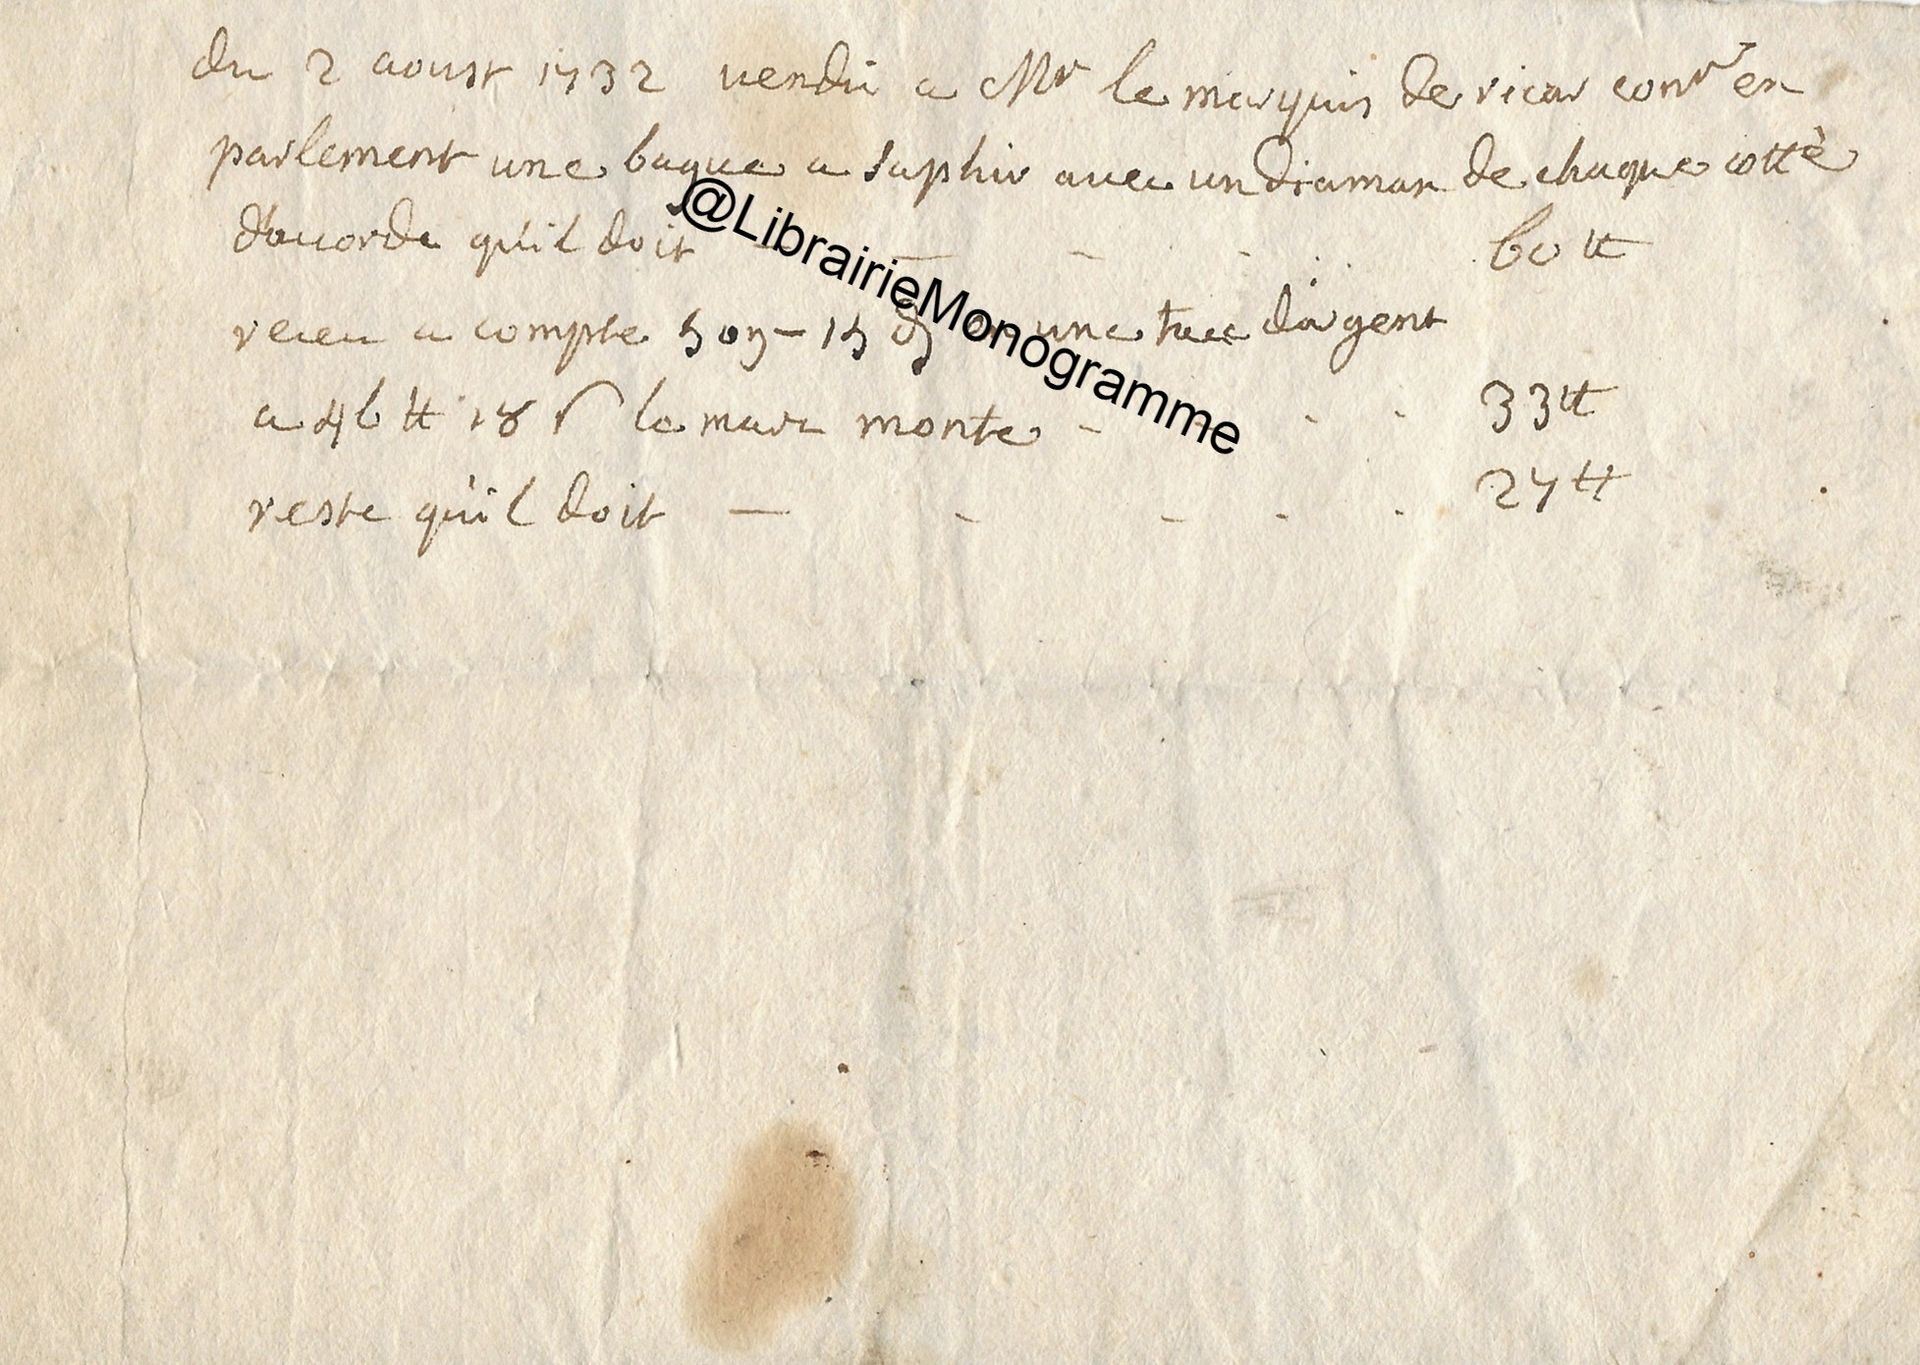 du 2 aoust 1732 vendu a Mr le marquis de ricar conr en
parlement une bague a saphir avec un diaman de chaque cotté
d'acorde qu'il doit - - - - 60 tt
receu a compte 5 on - 15 une tace d'argent
a 46 tt 18 s le marc monte - - - 33 tt
reste qu'il doit — - - - - 27 tt
@LibrairieMonogramme